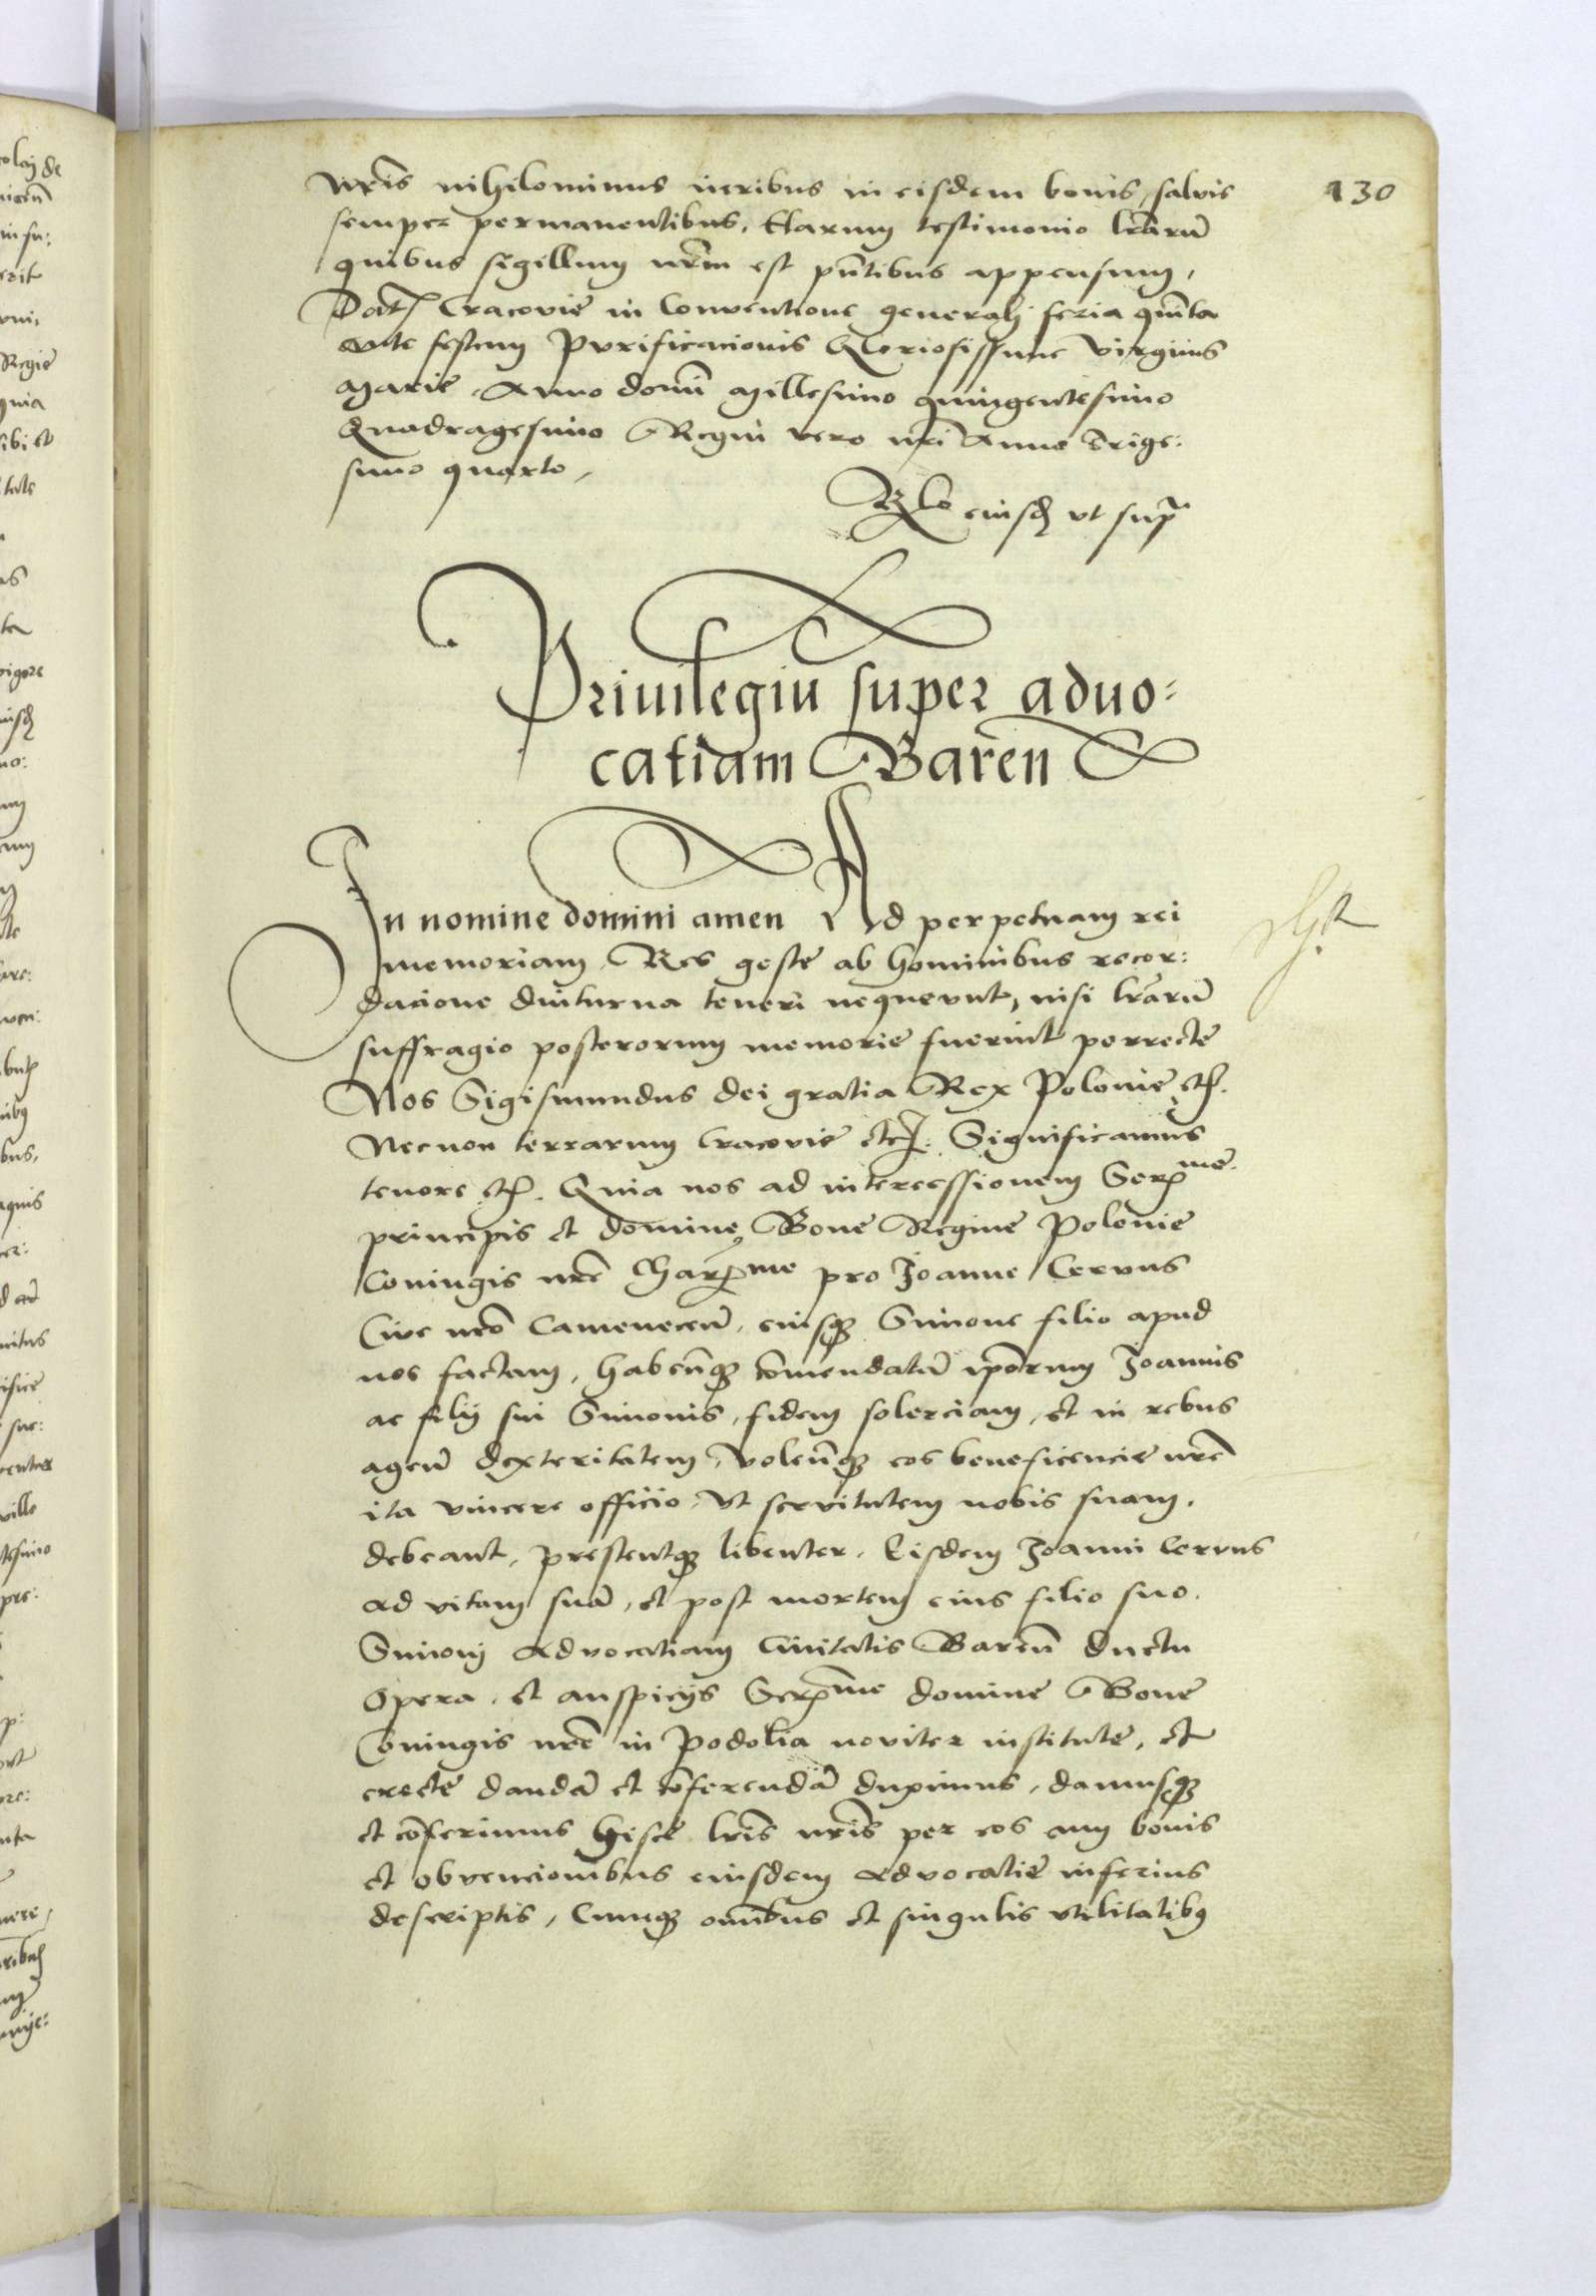 130
nr̃is nihilominus iuribus in eisdem bonis, salvis
semper permanentibus. Harum testimonio lr̃arũ
quibus sigillum nr̃m est pñtibus appensum.
Dat Cracovie in Conventione generali feria quĩta
ante festum Purificacionis Gloriosissime Virginis
Marie. Anno domĩ Millesimo quingentesimo
Quadragesimo Regni vero nr̃i Anno Trige:
simo quarto.
Rlo eiusd ut sup̃
Priuilegiũ super aduo=
catiam Bareñ
In nomine domini amen Ad perpetuam rei
memoriam. Res geste ab hominibus recor:
dacione diuturna teneri nequeunt, nisi lr̃arũ
suffragio posterorum memorie fuerint porrecte
Nos Sigismundus dei gratia Rex Polonie etc.
Necnon terrarum Cracovie etc. Significamus
tenore etc. Quia nos ad intercessionem Serme.
principis et domine Bone Regine Polonie
Coniugis nr̃e Charme pro Joanne Cervus
Cive nr̃o Camenecen̄, eiusq3 Simone filio apud
nos factam, habeñq3 comendatã ip̃orum Joannis
ac filij sui Simonis, fidem solerciam, et in rebus
agen̄ dexteritatem, Voleñq3 eos beneficencie nr̃e
ita vincere officio, Ut servitutem nobis suam.
debeant, prestentq3 libenter. Eisdem Joanni Cervus
ad vitam suã, et post mortem eius filio suo.
Simoni Advocatiam Civitatis Bareñ ductu
Opera, et auspicijs Serme domine Bone
Coniugis nr̃e in Podolia noviter institute, et
erecte dandã et cõferendã duximus, damusq3
et cõferimus hisce lr̃is nr̃is per eos cum bonis
et obvencionibus eiusdem Advocatie inferius
descriptis, Cumq3 om̃ibus et singulis utilitatib9